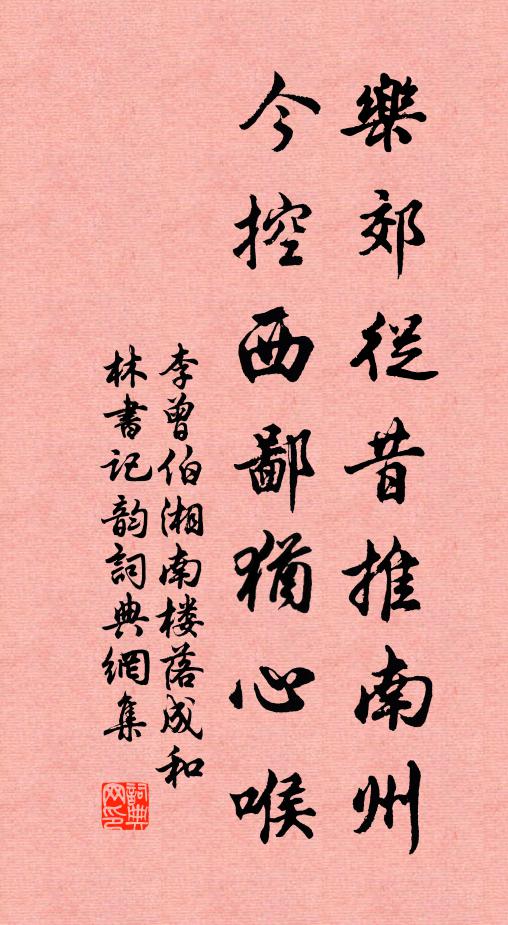 樂郊從昔推南州
今控西鄙猶心喉
李曾伯湘南楼落成和
林書记韵詞典網集
詞典网印